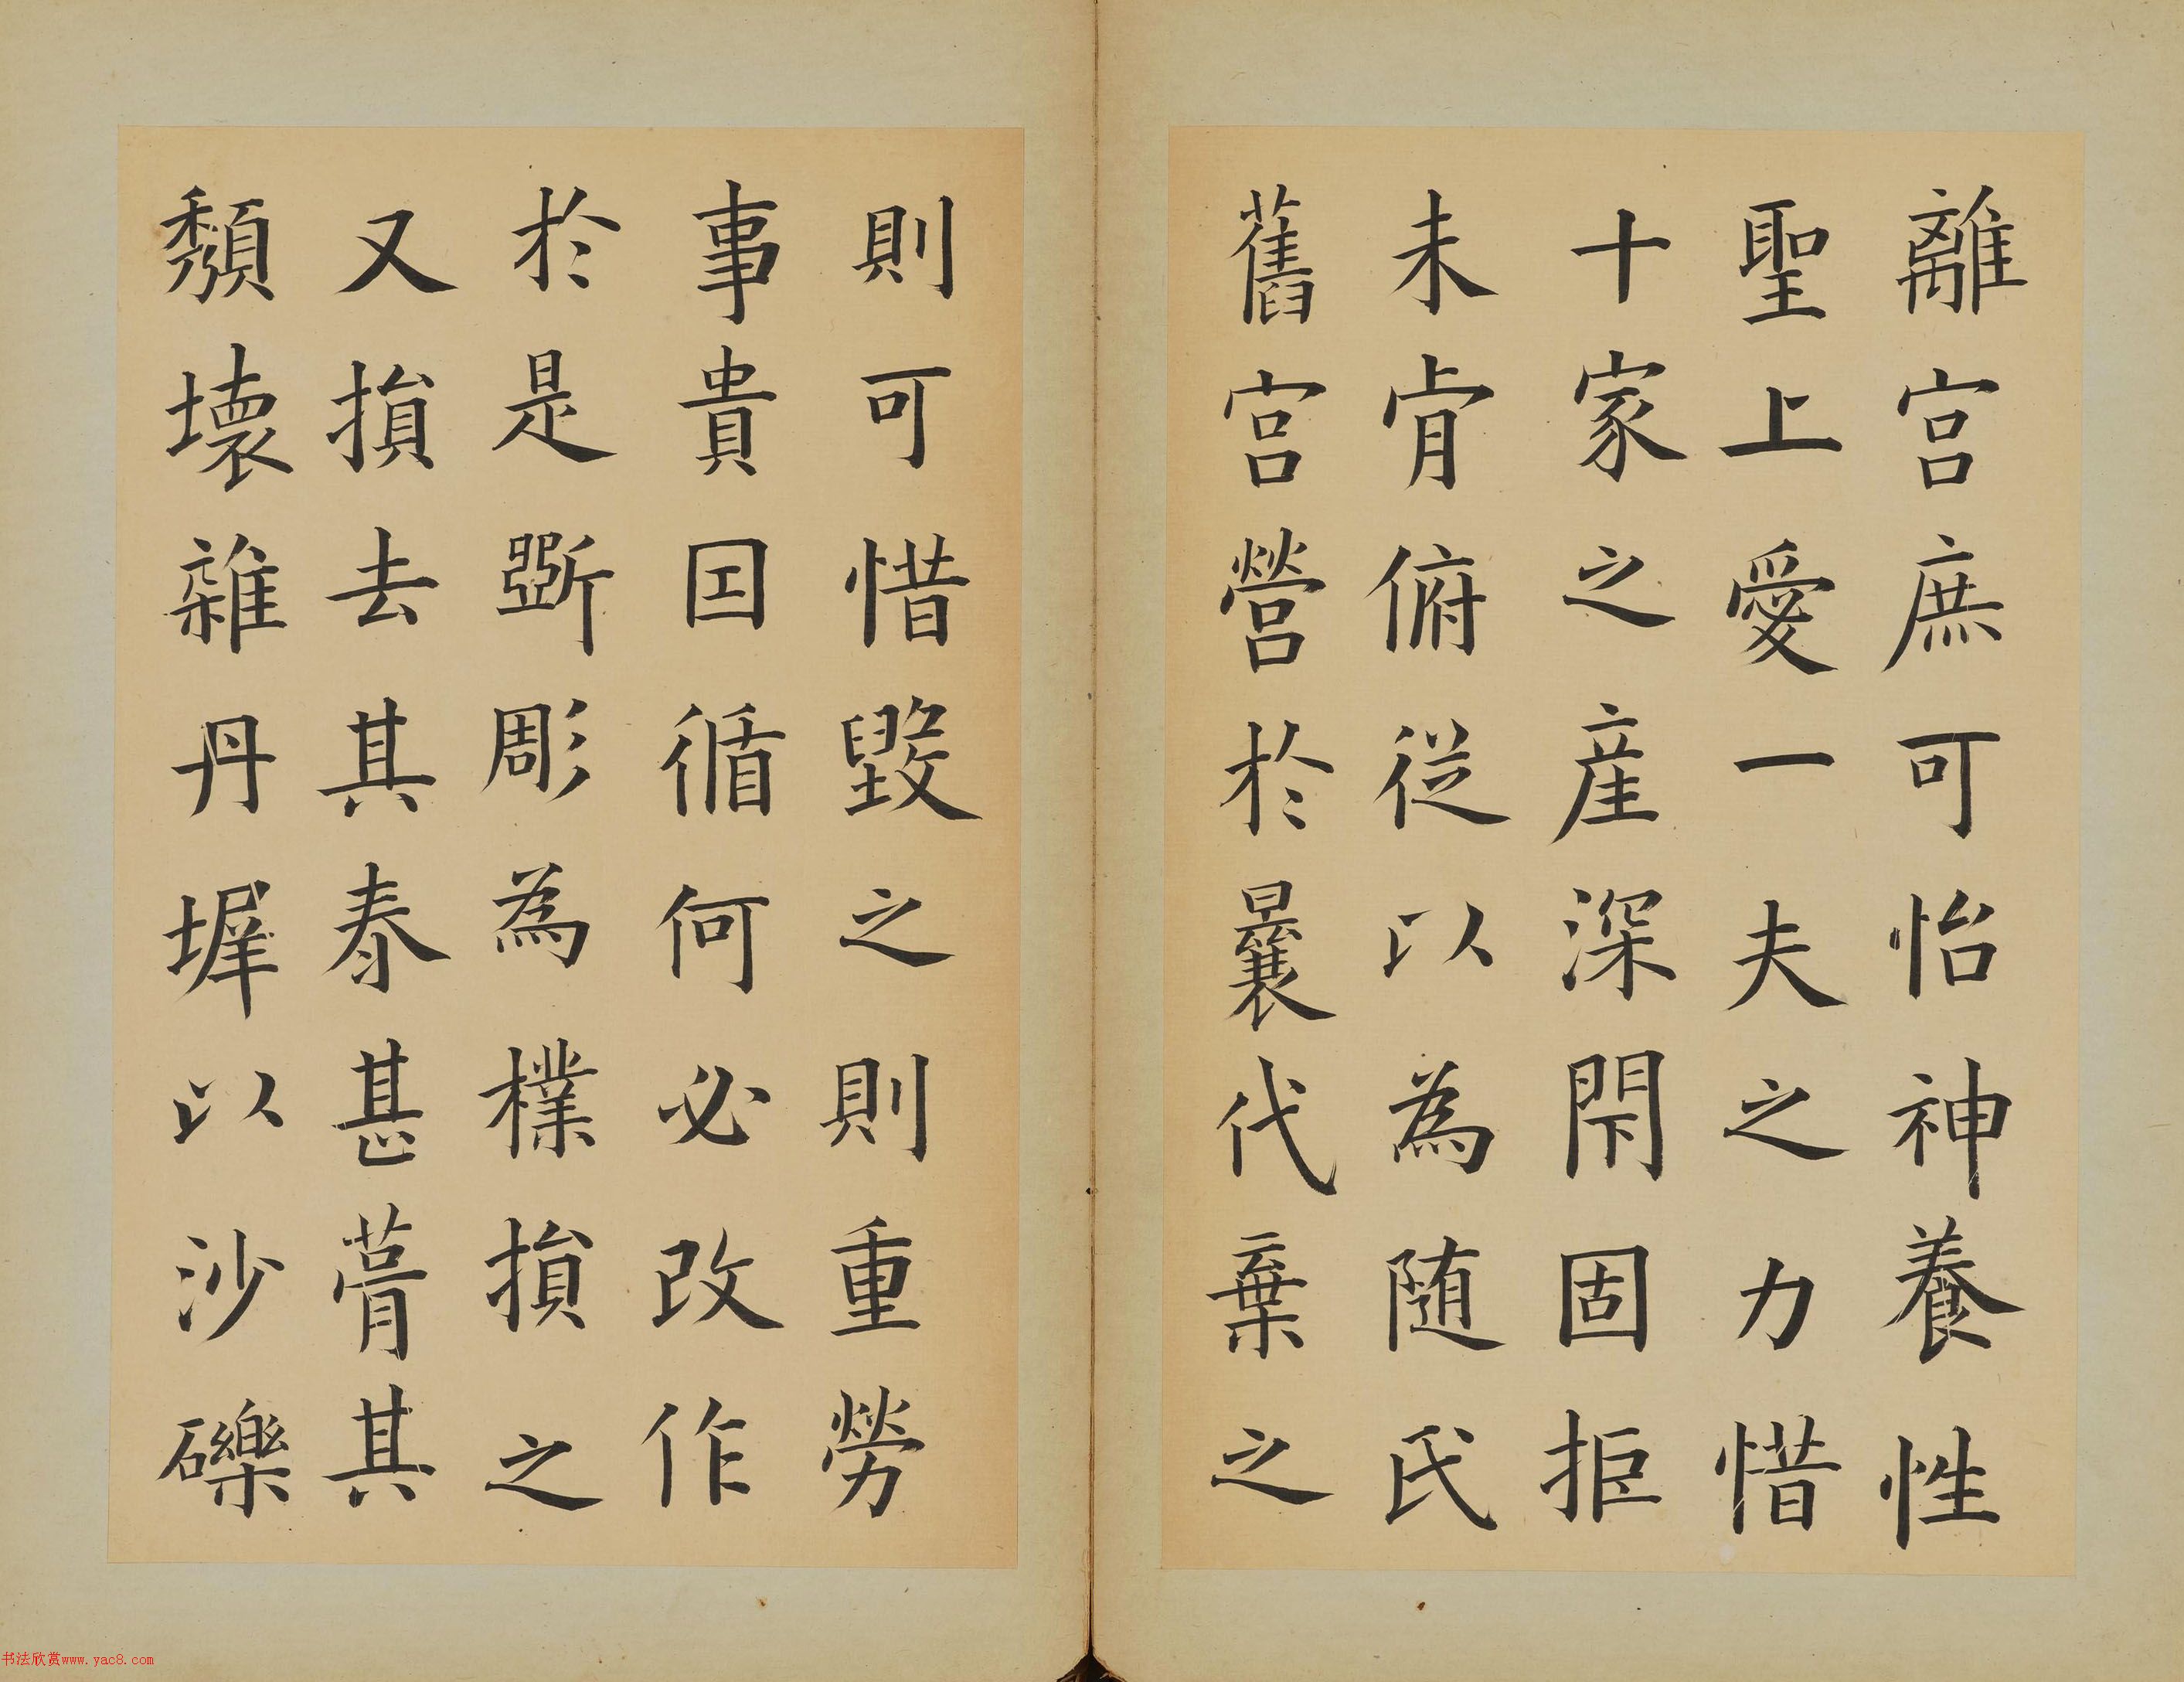 離宮庶可怡神養性
聖上愛一夫之力惜
十家之產深閇固拒
未肯俯從以為隨氏
舊宮營於曩代棄之
則可惜毀之則重勞
事貴因循何必改作
於是斲彫為樸損之
又損去其泰甚葺其
頹壞雜丹墀以沙礫
书法欣赏www.yac8.com